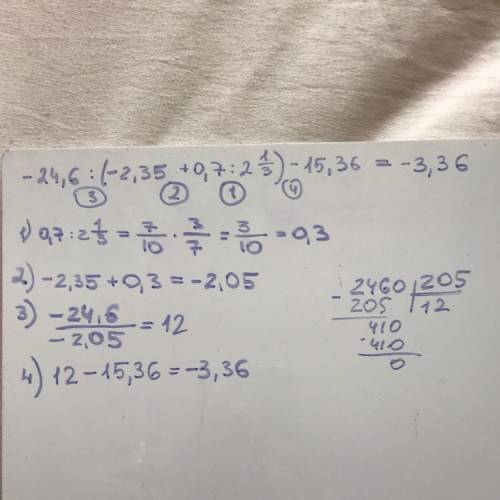 -24,6 : (-2,35 + 0,7 : 2 1/3) - 15,36 = -3,36
③ ② ① ④
1) 0,7 : 2 1/3 = 7/10 · 3/7 = 3/10 = 0,3
2) -2,35 + 0,3 = -2,05
3) -24,6/-2,05 = 12
4) 12 - 15,36 = -3,36
- 2460 | 205
205 | 12
410
- 410
0